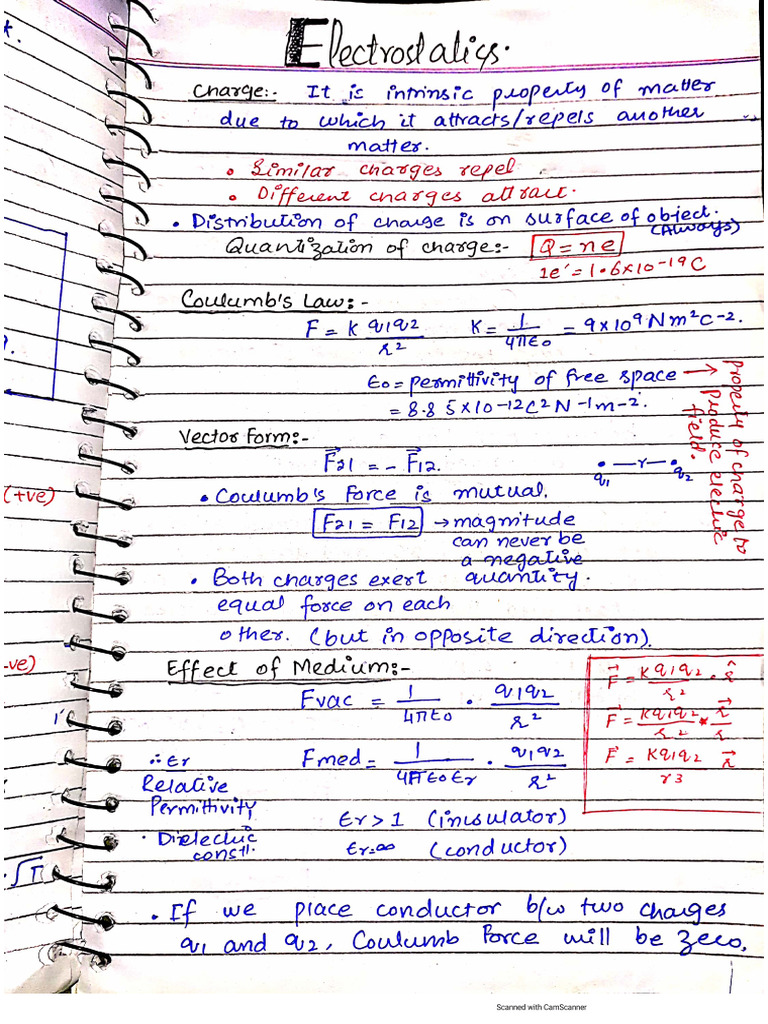 Electrostatics.
Charge:- It is intrinsic property of matter
due to which it attracts/repels another
matter.
• Similar charges repel
• Different charges attract.
• Distribution of charge is on surface of object.
(Always)
Quantization of charge:- Q = ne
1e' = 1.6x10-19C
Coulumb's Law:-
F = K q1q2/r² K = 1/4πε0 = 9x10 9 N m²c-2.
ε0 = permittivity of free space →
= 8.85x10-12C²N-1m-2.
Property of charge to
Produce electric
field.
Vector Form:-
F⃗21 = - F⃗12.
•—r—•
q1 q2
• Coulumb's Force is mutual.
F21 = F12 → magnitude
can never be
a negative
quantity.
• Both charges exert
equal force on each
other. (but in opposite direction).
Effect of Medium:-
Fvac = 1/4πε0 . q1q2/r²
∴ εr
Relative
Permittivity
• Dielectric
constt.
Fmed = 1/4πε0εr . q1q2/r²
εr > 1 (inusulator)
εr=∞ (conductor)
F⃗ = Kq1q2/r² . r̂
F⃗ = Kq1q2/r² * r⃗/r
F⃗ = Kq1q2/r3 r⃗
• If we place conductor b/w two charges
q1 and q2, Coulumb Force will be zero.
(+ve)
-ve)
√π
Scanned with CamScanner